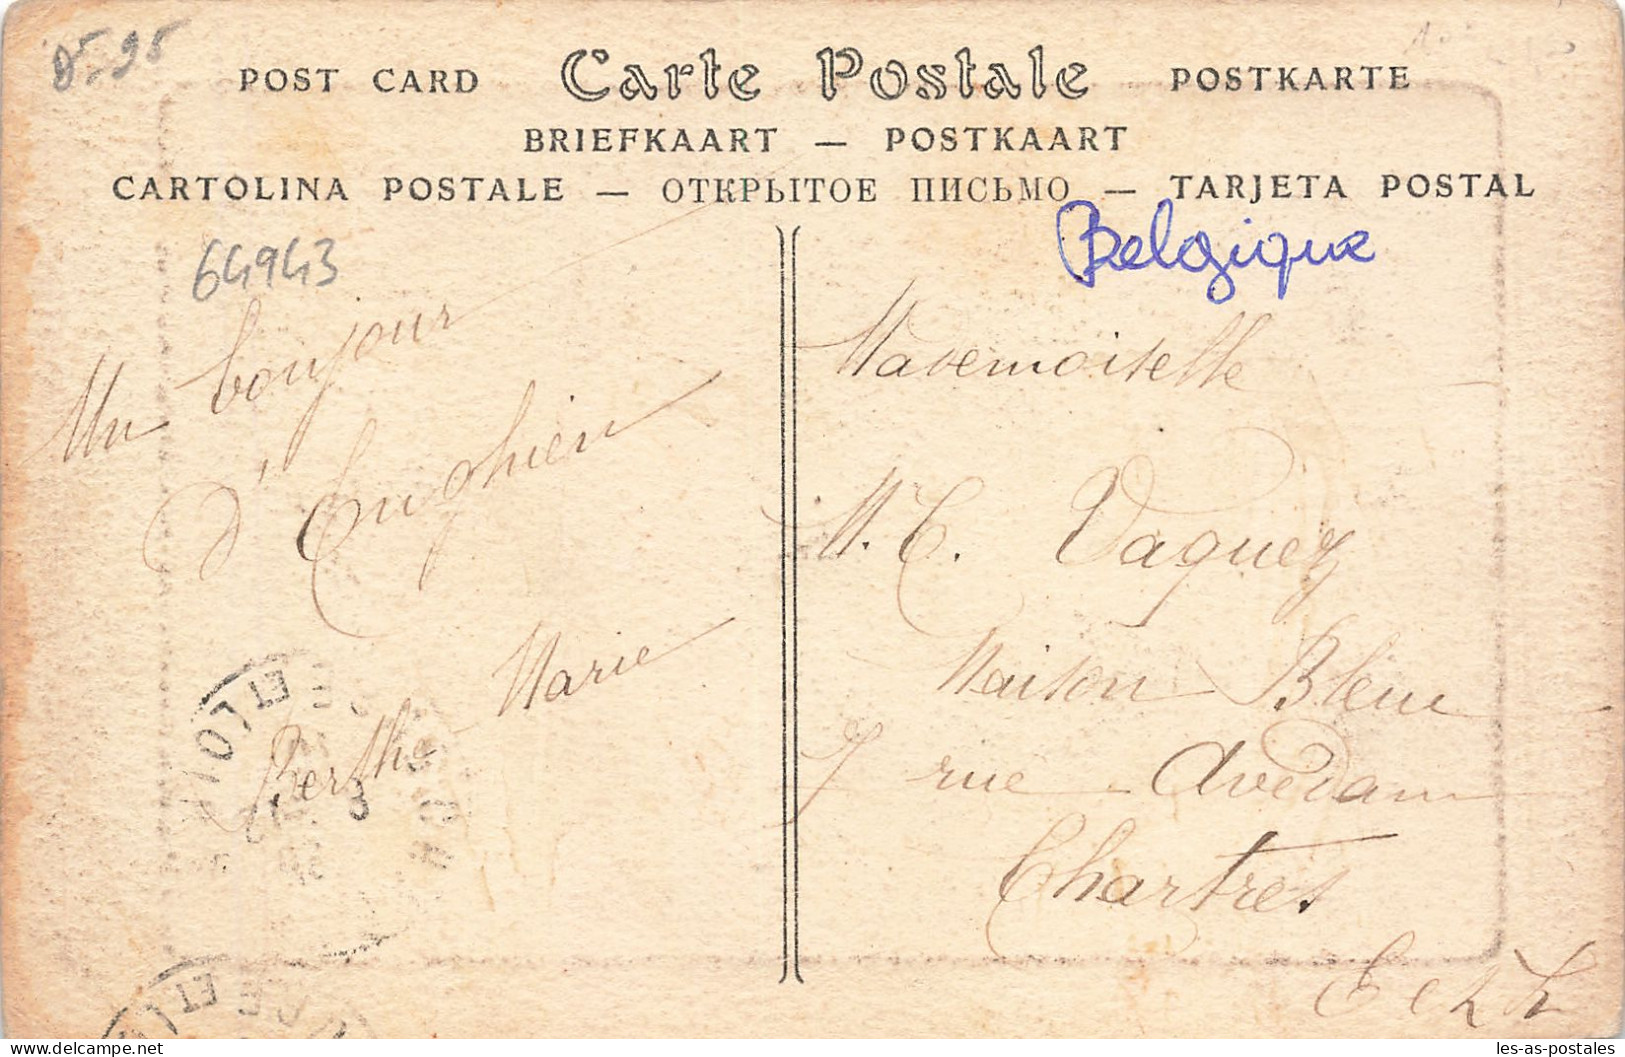 0F-95
POST CARD Carte Postale POSTKARTE
BRIEFKAART — POSTKAART
CARTOLINA POSTALE — ОТКРЫТОЕ ПИСЬМО — TARJETA POSTAL
Belgique
64943
Un bonjour
d'Enghien
Berthe-Marie
Mademoiselle
M. C. Vaquez
Maison Bleue
7 rue Avedam
Chartres
E et L
ET LOI
CE ET
les-as-postales